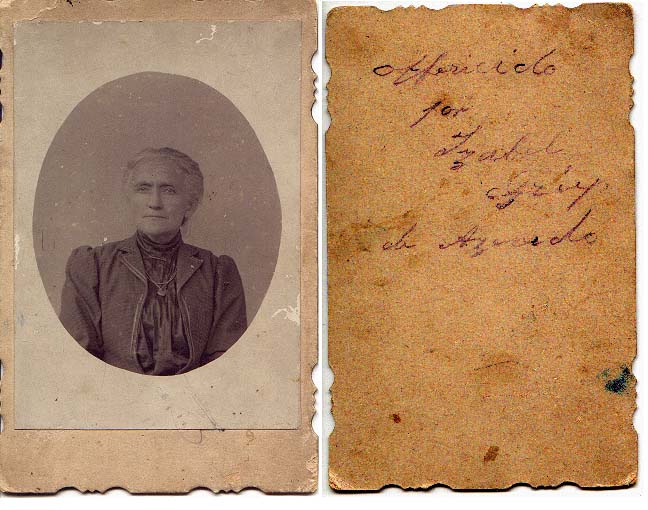 Offericido
por
Izabel
Grey.
de Azevedo